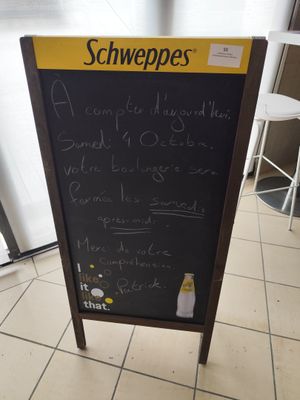 Schweppes
À compter d'aujourd'hui,
Samedi 4 Octobre,
votre boulangerie sera
fermée les samedis
après-midi.
Merci de votre
compréhension.
Patrick.
I
like
it
like
that.